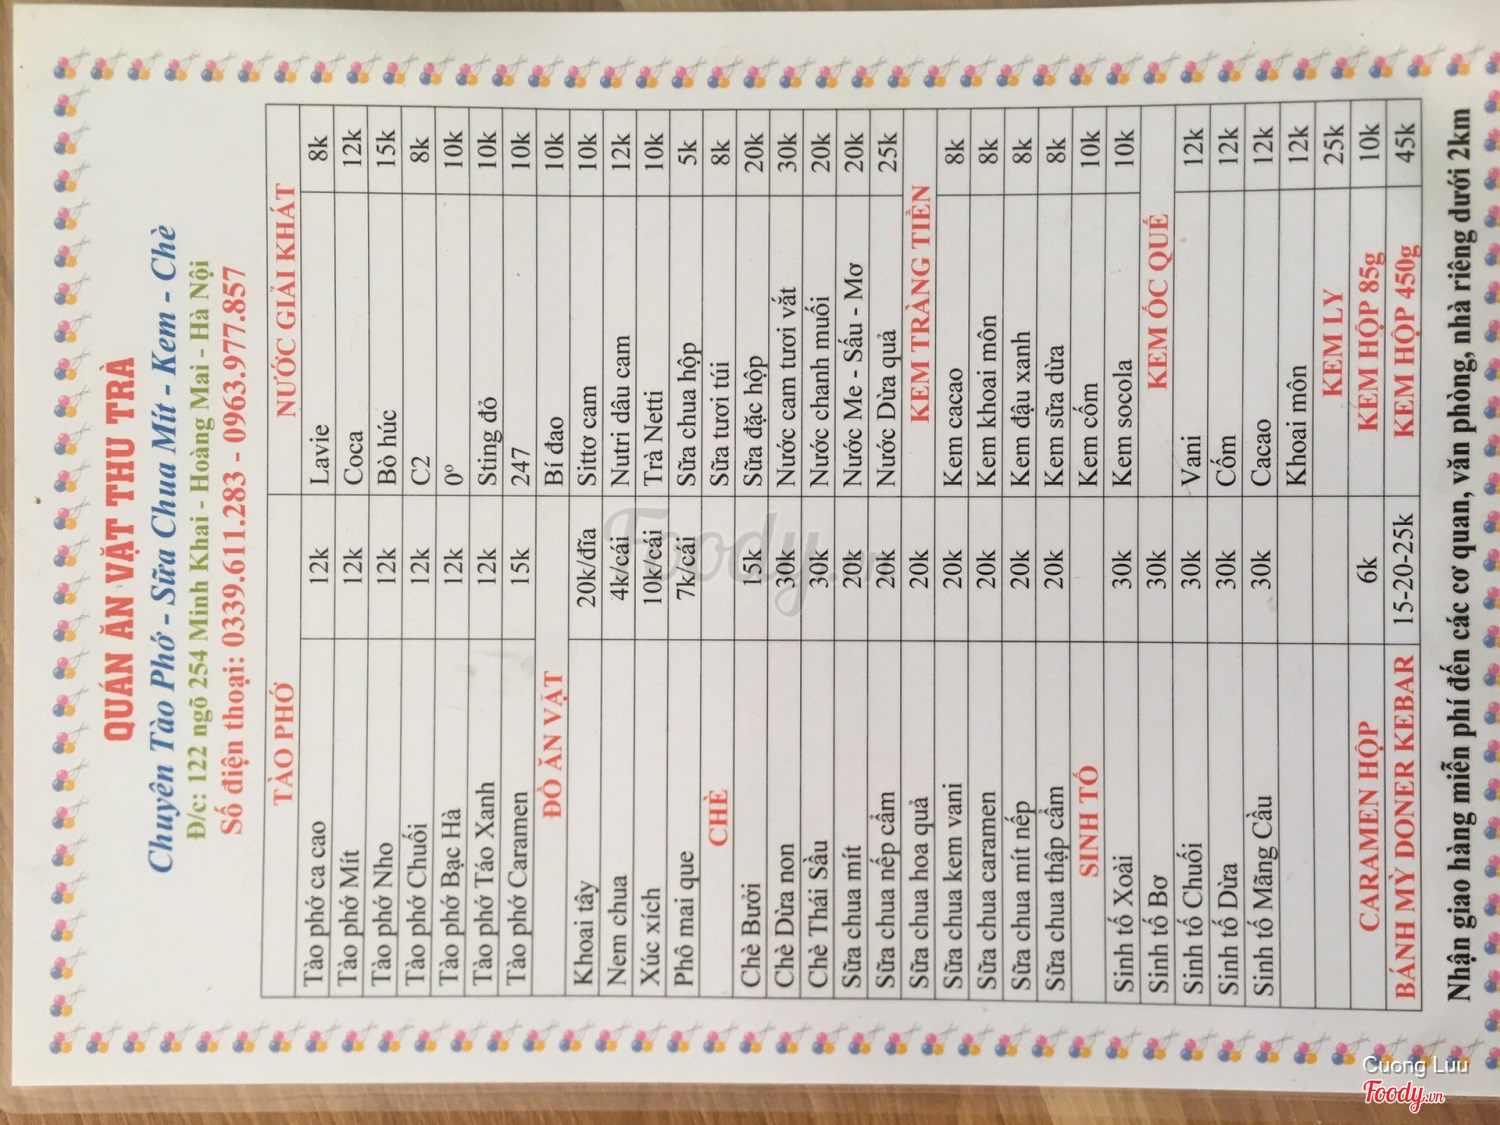 QUÁN ĂN VẶT THU TRÀ
Chuyên Tào Phớ - Sữa Chua Mít - Kem - Chè
Đ/c: 122 ngõ 254 Minh Khai - Hoàng Mai - Hà Nội
Số điện thoại: 0339.611.283 - 0963.977.857
TÀO PHỚ NƯỚC GIẢI KHÁT
Tào phớ ca cao 12k Lavie 8k
Tào phớ Mít 12k Coca 12k
Tào phớ Nho 12k Bò húc 15k
Tào phớ Chuối 12k C2 8k
Tào phớ Bạc Hà 12k 0º 10k
Tào phớ Táo Xanh 12k Sting đỏ 10k
Tào phớ Caramen 15k 247 10k
ĐỒ ĂN VẶT Bí đao 10k
Khoai tây 20k/đĩa Sittơ cam 10k
Nem chua 4k/cái Nutri dâu cam 12k
Xúc xích 10k/cái Trà Netti 10k
Phô mai que 7k/cái Sữa chua hộp 5k
CHÈ Sữa tươi túi 8k
Chè Bưởi 15k Sữa đặc hộp 20k
Chè Dừa non 30k Nước cam tươi vắt 30k
Chè Thái Sầu 30k Nước chanh muối 20k
Sữa chua mít 20k Nước Me - Sấu - Mơ 20k
Sữa chua nếp cẩm 20k Nước Dừa quả 25k
Sữa chua hoa quả 20k KEM TRÀNG TIỀN
Sữa chua kem vani 20k Kem cacao 8k
Sữa chua caramen 20k Kem khoai môn 8k
Sữa chua mít nếp 20k Kem đậu xanh 8k
Sữa chua thập cẩm 20k Kem sữa dừa 8k
SINH TỐ Kem cốm 10k
Sinh tố Xoài 30k Kem socola 10k
Sinh tố Bơ 30k KEM ỐC QUẾ
Sinh tố Chuối 30k Vani 12k
Sinh tố Dừa 30k Cốm 12k
Sinh tố Mãng Cầu 30k Cacao 12k
Khoai môn 12k
KEM LY 25k
CARAMEN HỘP 6k KEM HỘP 85g 10k
BÁNH MỲ DONER KEBAR 15-20-25k KEM HỘP 450g 45k
Nhận giao hàng miễn phí đến các cơ quan, văn phòng, nhà riêng dưới 2km
Foody.vn
Cuong Luu
Foody.vn